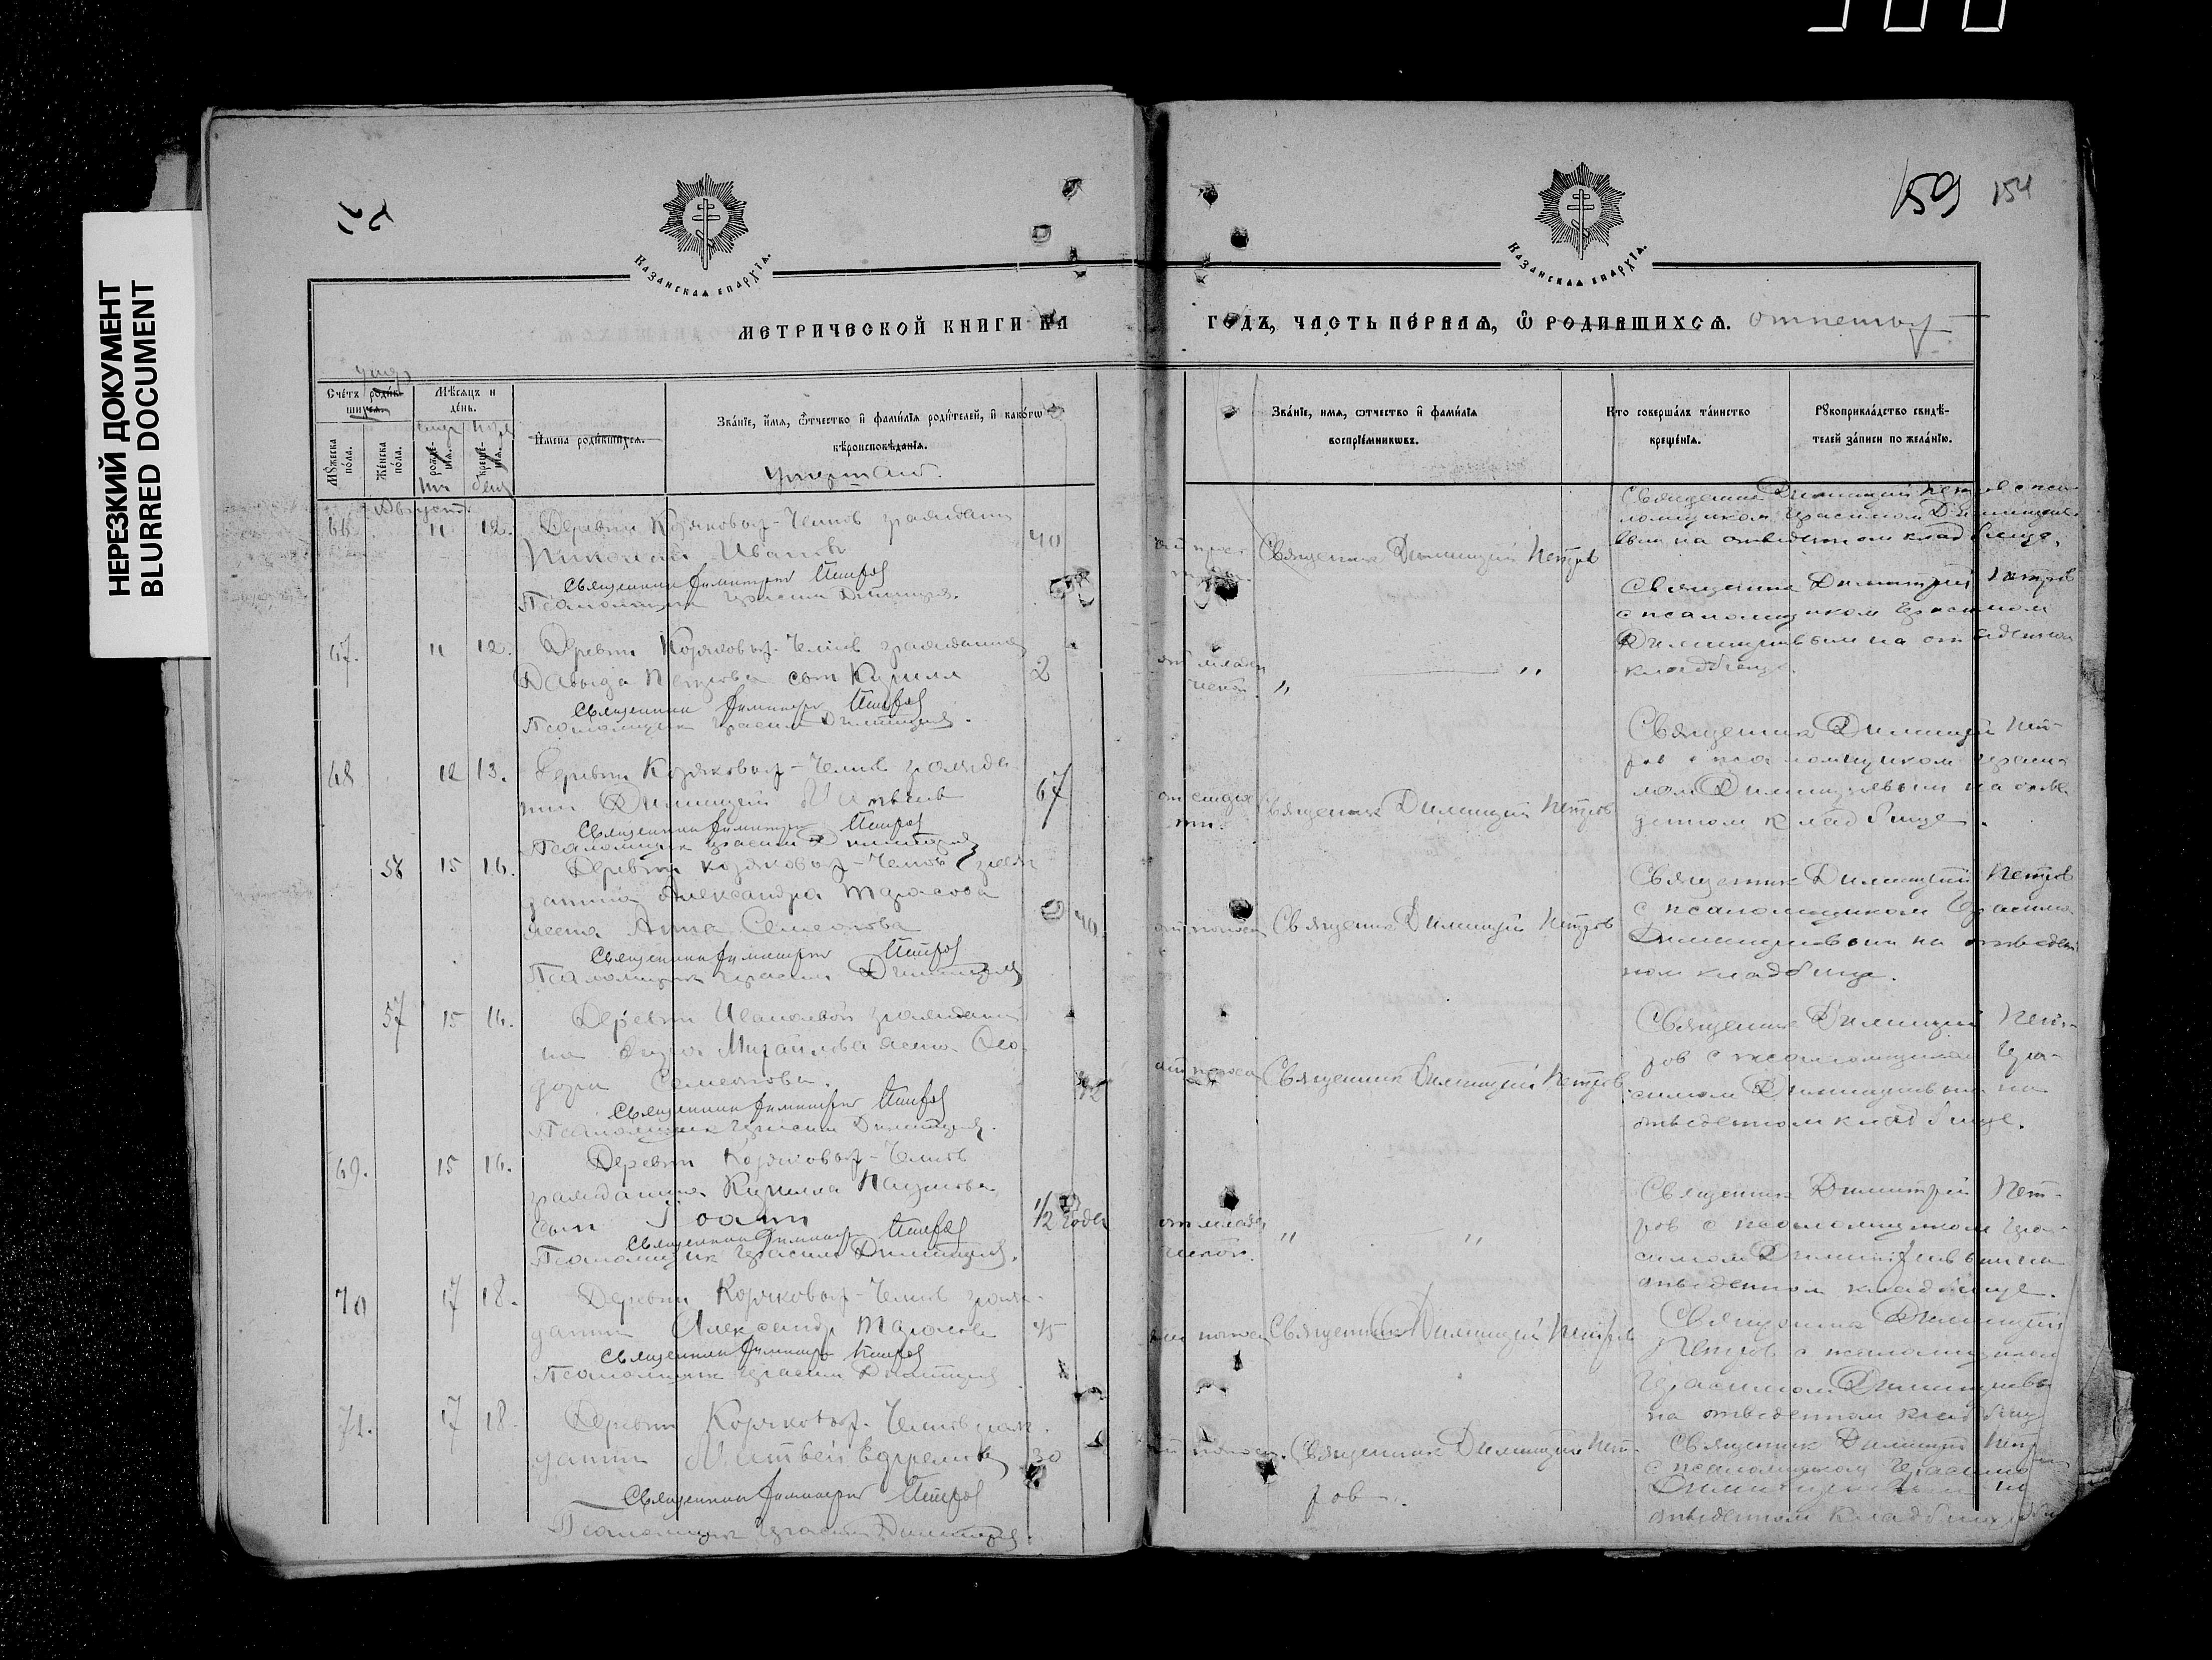 НЕРЕЗКИЙ ДОКУМЕНТ
BLURRED DOCUMENT
159 154
Казанская епархїя.
Казанская епархїя.
МЕТРИЧЕСКОЙ КНИГИ НА
ГОДЪ, ЧАСТЬ ПЕРВАЯ, Ѽ РОДИВШИХСЯ.
Счетъ родив-
шихся.
Мѣсяцъ и
день.
Мꙋжеска
пола.
Женска
пола.
рожде-
нїя.
креще-
нїя.
Имена родившихся.
Званїе, имя, ѻтчество и фамилїя родителей, и какогѡ
вѣроисповѣданїя.
умершаго.
Званїе, имя, ѻтчество и фамилїя
воспрїемникѡвъ.
Кто совершалъ таинство
крещенїя.
Рꙋкоприкладство свидѣ-
телей записи по желанїю.
Август
66 11 12. Деревни Коряковых-Челнов гражданин
Николай Иванов
40
Священник Димитрий Петров
Псаломщик Герасим Димитриев.
Священник Димитрий Петров
Священник Димитрий Петров с пса-
ломщиком Герасимом Димитрие-
вым на отведенном кладбище.
67. 11 12. Деревни Коряковых-Челнов гражданина
Давыда Петрова сын Кирилл
2
Священник Димитрий Петров
Псаломщик Герасим Димитриев.
от младен
ческой
" "
Священник Димитрий Петров
с псаломщиком Герасимом
Димитриевым на отведенном
кладбище.
68 12 13. Деревни Коряковых-Челнов гражда-
нин Димитрий Матвеев
67
Священник Димитрий Петров
Псаломщик Герасим Димитриев
от старос
ти.
Священник Димитрий Петров
Священник Димитрий Пет-
ров с псаломщиком Гераси-
мом Димитриевым на отве-
денном кладбище.
56 15 16. Деревни Коряковых-Челнов граж-
данина Александра Тарасова
жена Анна Семенова
40
Священник Димитрий Петров
Псаломщик Герасим Димитриев
от поноса
Священник Димитрий Петров
Священник Димитрий Петров
с псаломщиком Герасимом
Димитриевым на отведен-
ном кладбище.
57 15 16.
Михайлова жена Фео-
дора Семенова.
Священник Димитрий Петров
Псаломщик Герасим Димитриев.
от поноса
Священник Димитрий Петров
Священник Димитрий Пет-
ров с псаломщиком Гера-
симом Димитриевым на
отведенном кладбище.
69. 15 16. Деревни Коряковых-Челнов
гражданина Кирилла Наумова
сын Иоанн
1/2 года
Священник Димитрий Петров
Псаломщик Герасим Димитриев.
от младен
ческой.
" "
Священник Димитрий Пет-
ров с псаломщиком Гера-
симом Димитриевым на
отведенном кладбище.
70 17 18. Деревни Коряковых-Челнов граж-
данин Александр Тарасов
45
Священник Димитрий Петров
Псаломщик Герасим Димитриев
от поноса
Священник Димитрий Петров
Священник Димитрий
Петров с псаломщиком
Герасимом Димитриевым
на отведенном кладбище
71. 17 18. Деревни Коряковых-Челнов граж-
данин Матвей Ефремов
30
Священник Димитрий Петров
Псаломщик Герасим Димитриев.
от поноса.
Священник Димитрий Пет-
ров.
Священник Димитрий Петров
с псаломщиком Герасимом
Димитриевым на
отведенном кладбище